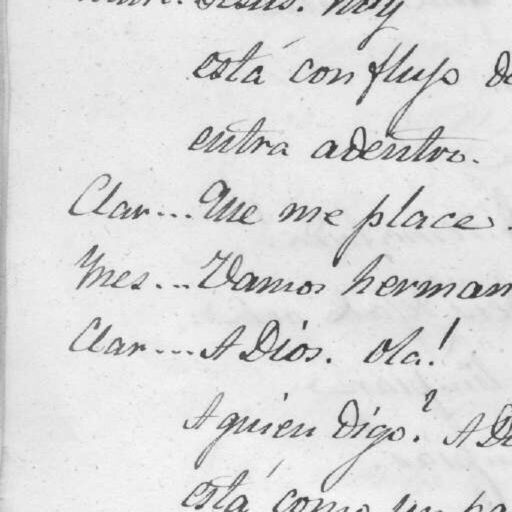 Jesus. hoy
está con flujo de
entra adentro.
Clar... Que me place.
Ynes... Vamos herman
Clar... A Dios. Ola!
A quien digo? A Di
está como un pa